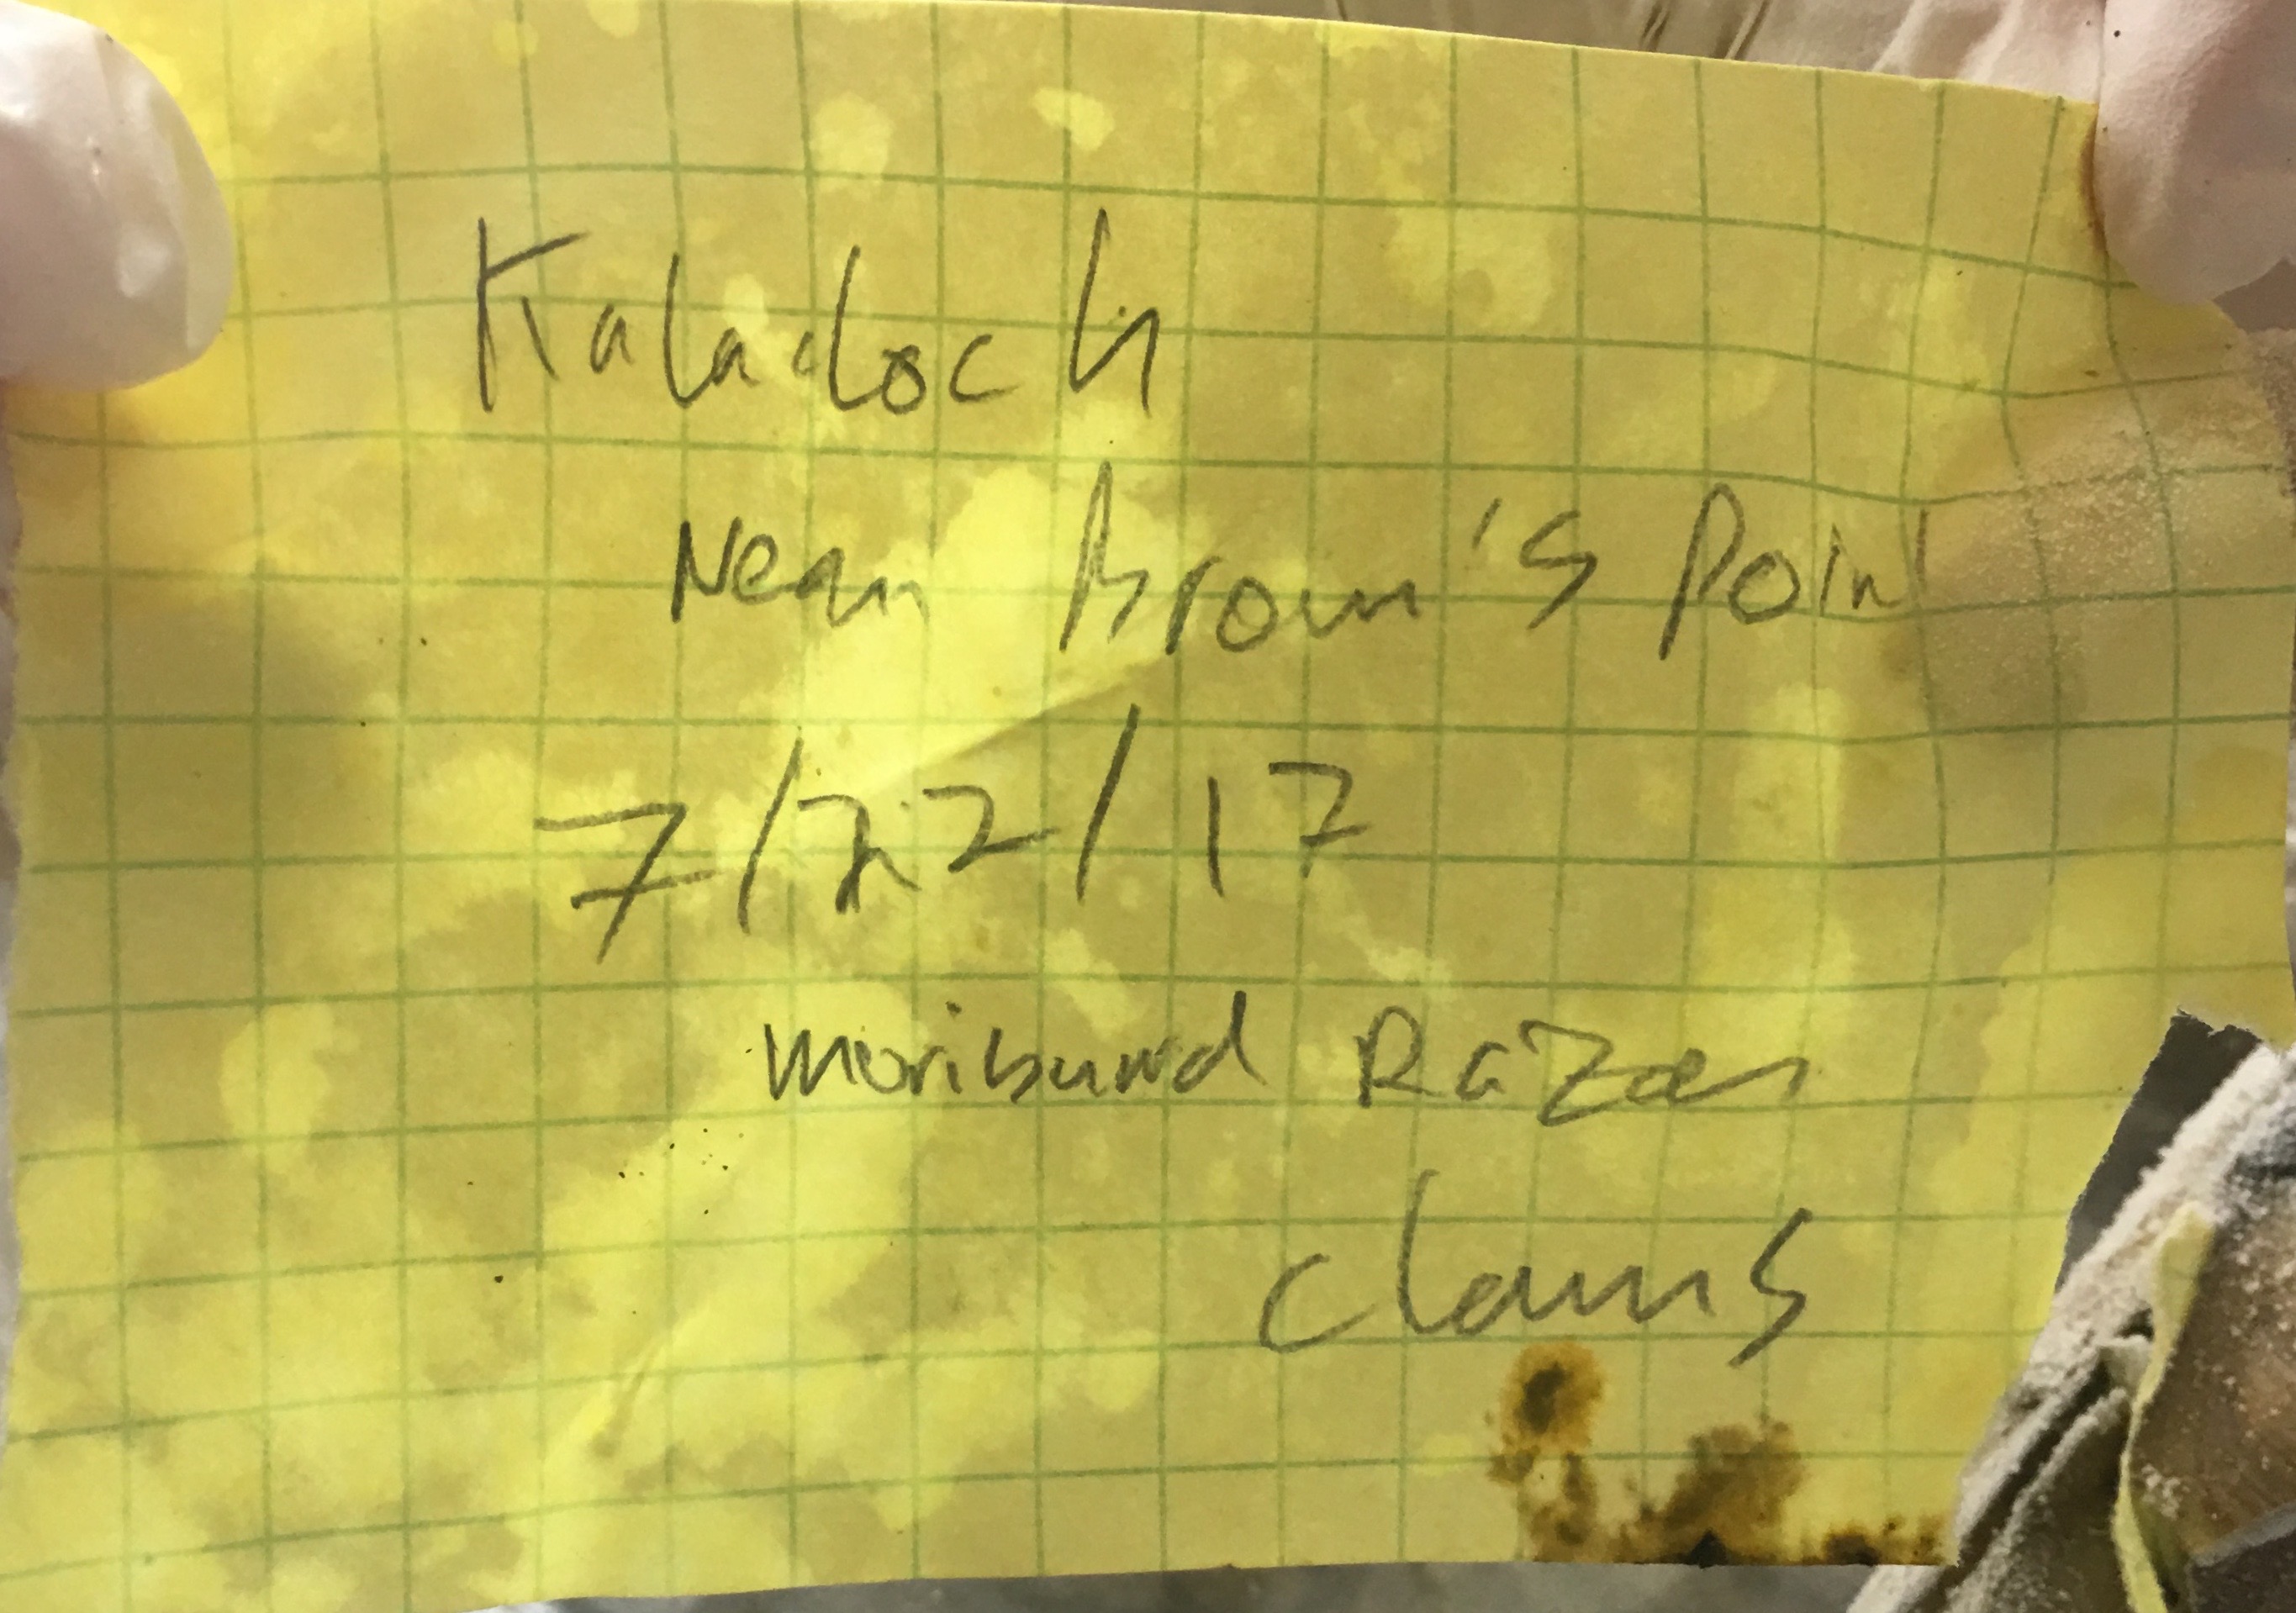 Kalaloch
Near Brown's Point
7/22/17
moribund Razor
clams